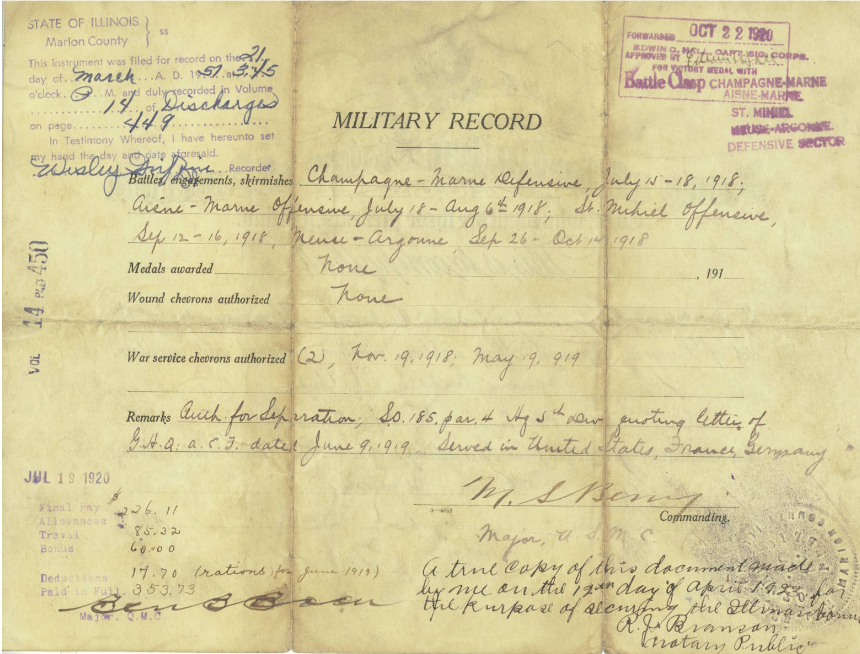 STATE OF ILLINOIS } ss
Marion County
This instrument was filed for record on the 21
day of March A. D. 1951 at 3:45
o'clock P. M. and duly recorded in Volume
14 of Discharges
on page 449
In Testimony Whereof, I have hereunto set
my hand the day and date aforesaid.
Wesley Recorder
FORWARDED OCT 22 1920
EDWIN C. HALL, CAPT. SIG. CORPS.
APPROVED BY
FOR VICTORY MEDAL WITH
Battle Clasp CHAMPAGNE-MARNE
AISNE-MARNE.
ST. MIHIEL
MEUSE-ARGONNE.
DEFENSIVE SECTOR
MILITARY RECORD
Battles, engagements, skirmishes Champagne-Marne Defensive, July 15-18, 1918;
Aisne-Marne Offensive, July 18-Aug 6th 1918; St. Mihiel Offensive,
Sep 12-16, 1918, Meuse-Argonne Sep 26- Oct 1918
Medals awarded None , 191
Wound chevrons authorized None
VOL 14 PAG 450
War service chevrons authorized (2), Nov. 19, 1918; May 19, 919
Remarks Auth for Separation; S.O. 185, par. 4 Hq 5th Div quoting letter of
G.H.Q. A.E.F. dated June 9, 1919. Served in United States, France, Germany
JUL 19 1920
M. S. Berry
3-4052
Commanding.
Major, U.S.M.C.
Final Pay $226.11
Allowances
Travel 85.32
Bonus 60.00
Deductions 17.70 (rations for June 1919)
Paid in Full. 353.73
Major. Q.M.C.
A true copy of this document made
by me on the 12th day of April 1923 for
the purpose of securing the Illinois bonus
R. J. Branson
Notary Public